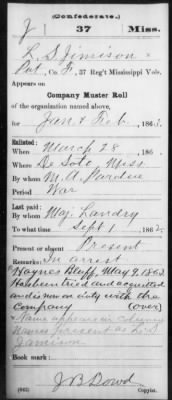 (Confederate.)
J 37 Miss.
L. S. Jimison
Pvt, Co. F, 37 Reg't Mississippi Vols.
Appears on
Company Muster Roll
of the organization named above,
for Jan & Feb, 1863.
Enlisted:
When March 28, 186
Where De Soto, Miss
By whom M. A. Pardue
Period War
Last paid:
By whom Maj. Landry
To what time Sept 1, 1862.
Present or absent Present
Remarks: In arrest
Haynes Bluff, May 9. 1863
Has been tried and acquitted
and is now on duty with the
Company (over)
Name appears in column
Names present as L. S.
Jamison
Book mark:
(642) J B Dowd
Copyist.